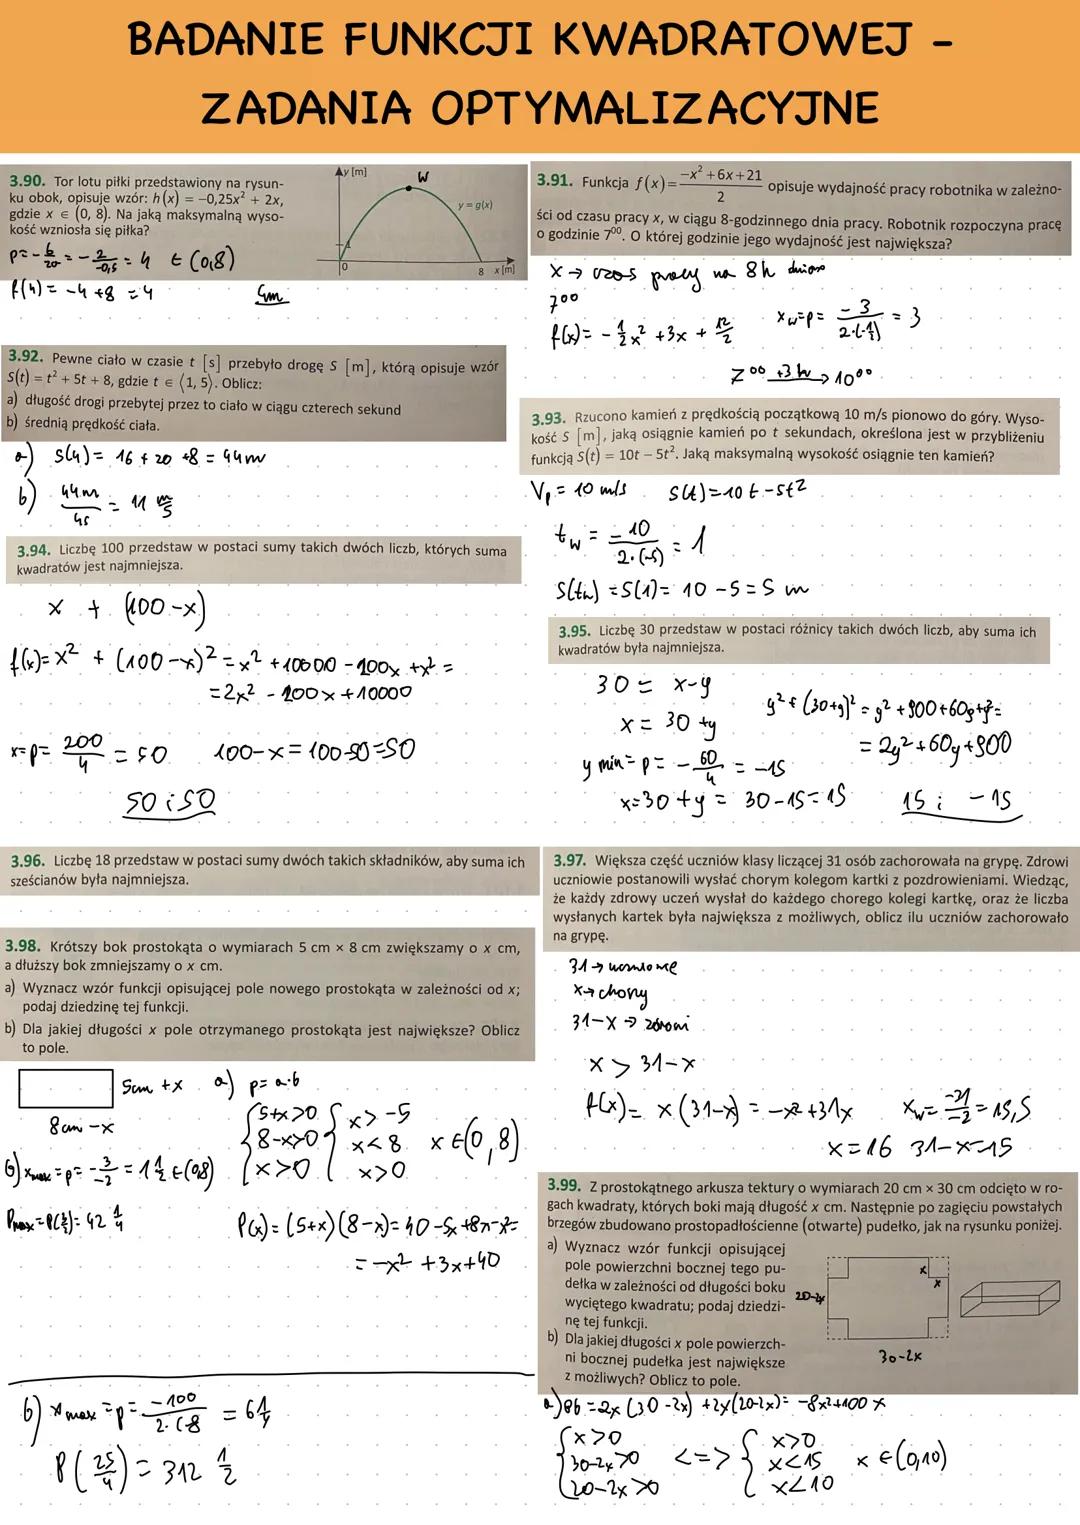 BADANIE FUNKCJI KWADRATOWEJ -
ZADANIA OPTYMALIZACYJNE
3.90. Tor lotu piłki przedstawiony na rysun-
ku obok, opisuje wzór: h(x) = −0,25x² + 2x,
gdzie x ∈ (0, 8). Na jaką maksymalną wyso-
kość wzniosła się piłka?
y [m]
W
y = g(x)
1
0
8 x [m]
p = -b/2a = -2/-0,5 = 4 ∈ (0,8)
f(4) = -4 +8 = 4
4m
3.91. Funkcja f(x) = (−x² + 6x + 21)/2 opisuje wydajność pracy robotnika w zależno-
ści od czasu pracy x, w ciągu 8-godzinnego dnia pracy. Robotnik rozpoczyna pracę
o godzinie 7⁰⁰. O której godzinie jego wydajność jest największa?
x → czas pracy na 8h
7⁰⁰
f(x) = -1/2x² +3x +
x w = p = -3/2·(-1/2) = 3
7⁰⁰ +3h → 10⁰⁰
3.92. Pewne ciało w czasie t [s] przebyło drogę S [m], którą opisuje wzór
S(t) = t² + 5t + 8, gdzie t ∈ ⟨1, 5⟩. Oblicz:
a) długość drogi przebytej przez to ciało w ciągu czterech sekund
b) średnią prędkość ciała.
a) s(4) = 16 + 20 +8 = 44m
b) 44m/4s = 11 m/s
3.93. Rzucono kamień z prędkością początkową 10 m/s pionowo do góry. Wyso-
kość S [m], jaką osiągnie kamień po t sekundach, określona jest w przybliżeniu
funkcją S(t) = 10t − 5t². Jaką maksymalną wysokość osiągnie ten kamień?
Vp = 10 m/s s(t) = 10t - 5t²
t w = -10/2·(-5) = 1
S(tw) = S(1) = 10 - 5 = 5 m
3.94. Liczbę 100 przedstaw w postaci sumy takich dwóch liczb, których suma
kwadratów jest najmniejsza.
x + (100-x)
f(x) = x² + (100-x)² = x² + 10000 - 200x + x² =
= 2x² - 200x + 10000
x = p = 200/4 = 50 100-x = 100-50 = 50
50 i 50
3.95. Liczbę 30 przedstaw w postaci różnicy takich dwóch liczb, aby suma ich
kwadratów była najmniejsza.
30 = x-y
x = 30 + y
y² + (30+y)² = y² + 900 + 60y + y² =
= 2y² + 60y + 900
y min = p = -60/4 = -15
x = 30 + y = 30 - 15 = 15
15 i -15
3.96. Liczbę 18 przedstaw w postaci sumy dwóch takich składników, aby suma ich
sześcianów była najmniejsza.
3.97. Większa część uczniów klasy liczącej 31 osób zachorowała na grypę. Zdrowi
uczniowie postanowili wysłać chorym kolegom kartki z pozdrowieniami. Wiedząc,
że każdy zdrowy uczeń wysłał do każdego chorego kolegi kartkę, oraz że liczba
wysłanych kartek była największa z możliwych, oblicz ilu uczniów zachorowało
na grypę.
31 →
x → chory
31-x → zdrowi
x > 31-x
f(x) = x(31-x) = -x² + 31x
x w = -31/-2 = 15,5
x = 16 31-x = 15
3.98. Krótszy bok prostokąta o wymiarach 5 cm × 8 cm zwiększamy o x cm,
a dłuższy bok zmniejszamy o x cm.
a) Wyznacz wzór funkcji opisującej pole nowego prostokąta w zależności od x;
podaj dziedzinę tej funkcji.
b) Dla jakiej długości x pole otrzymanego prostokąta jest największe? Oblicz
to pole.
5cm + x
8cm - x
a) p = a·b
{ 5+x>0 { x > -5
{ 8-x>0 { x < 8 x ∈ (0,8)
{ x>0 { x>0
b) x max = p = -3/-2 = 1 1/2 ∈ (0,8)
P max = P(3/2) = 42 1/4
P(x) = (5+x)(8-x) = 40 - 5x + 8x - x² =
= -x² + 3x + 40
3.99. Z prostokątnego arkusza tektury o wymiarach 20 cm × 30 cm odcięto w ro-
gach kwadraty, których boki mają długość x cm. Następnie po zagięciu powstałych
brzegów zbudowano prostopadłościenne (otwarte) pudełko, jak na rysunku poniżej.
a) Wyznacz wzór funkcji opisującej
pole powierzchni bocznej tego pu-
dełka w zależności od długości boku
wyciętego kwadratu; podaj dziedzi-
nę tej funkcji.
b) Dla jakiej długości x pole powierzch-
ni bocznej pudełka jest największe
z możliwych? Oblicz to pole.
x
x
20-2x
30-2x
a) Pb = 2x(30-2x) + 2x(20-2x) = -8x² + 100x
{ x>0 { x>0
{ 30-2x>0 <=> { x<15 x ∈ (0,10)
{ 20-2x>0 { x<10
b) x max = p = -100/2·(-8 = 6 1/4
P(25/4) = 312 1/2